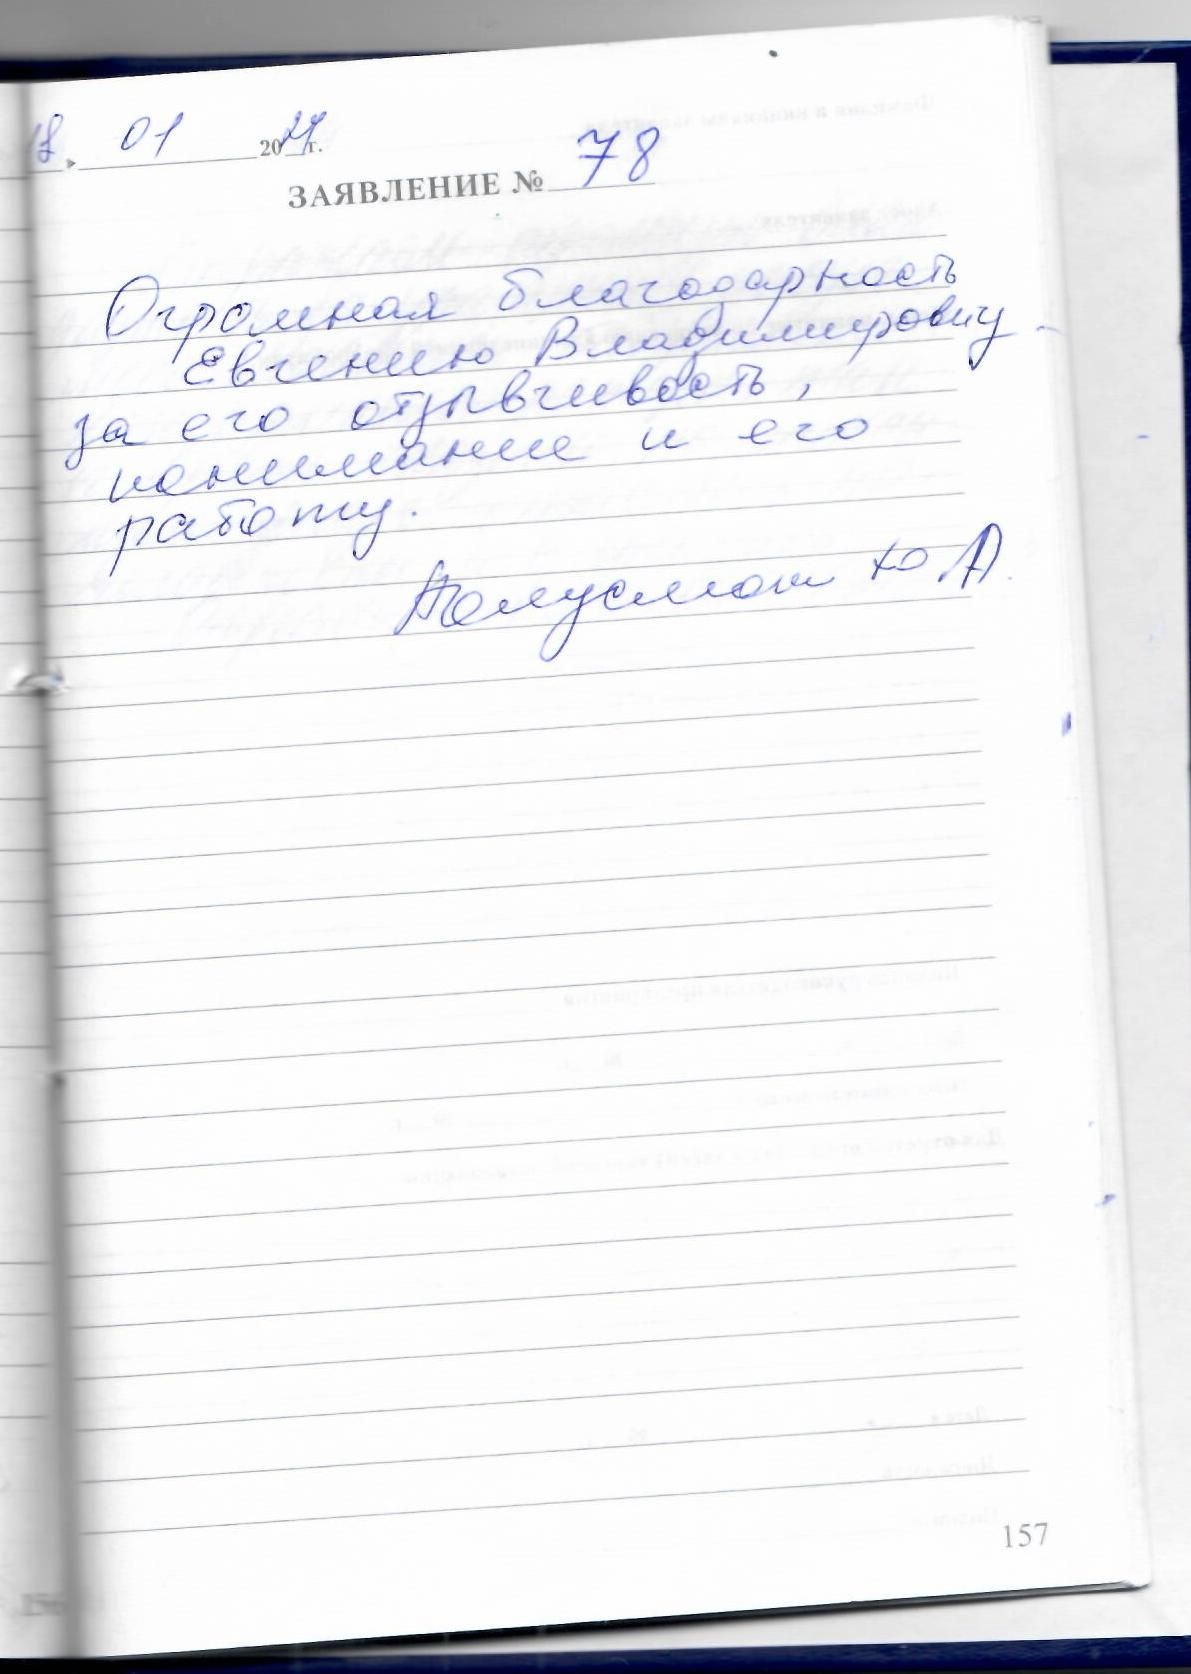 18 » 01 2024 г.
ЗАЯВЛЕНИЕ № 78
Огромная благодарность
Евгению Владимировичу
за его отзывчивость,
понимание и его
работу.
Ю А.
157